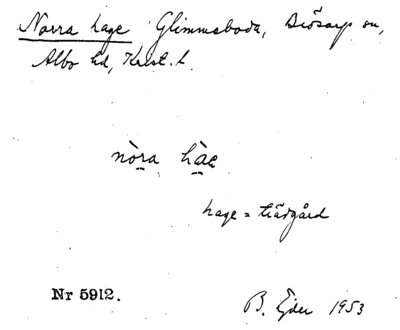 Norra hage Glimmeboda, Brösarp sn,
Albo hd, Krist. l.
nòra hàe
hage = trädgård
Nr 5912.
B. Ejder 1953